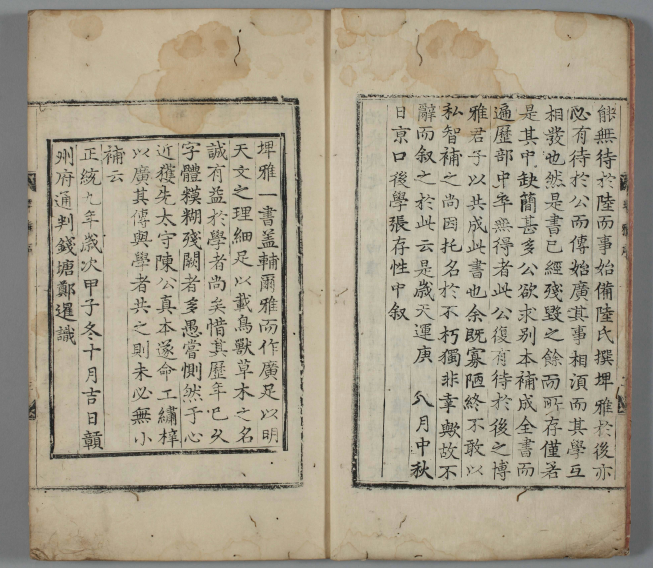 能無待於陸而事始備陸氏撰埤雅於後亦
必有待於公而傳始廣其事相湏而其學互
相發也然是書已經殘毀之餘而所存僅若
是其中缺簡甚多公欲求别本補成全書而
遍歷部中率無得者此公復有待於後之博
雅君子以共成此書也余既寡陋終不敢以
私智補之尚因托名於不朽獨非幸歟故不
辭而叙之於此云是歲天運庚 八月中秋
日京口後學張存性中叙
埤雅一書盖輔爾雅而作廣足以明
天文之理細足以載鳥獸草木之名
誠有益於學者尚矣惜其歷年已久
字體糢糊殘闕者多愚嘗惻然于心
近獲先太守陳公真本遂命工繡梓
以廣其傳與學者共之則未必無小
補云
正統九年歲次甲子冬十月吉日贛
州府通判錢塘鄭暹識